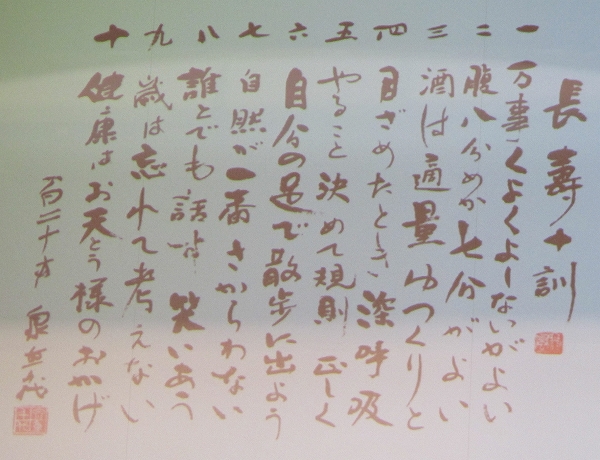 長寿十訓
一 万事くよくよしないがよい
二 腹八分めか七分がよい
三 酒は適量ゆっくりと
四 目ざめたとき深呼吸
五 やること決めて規則正しく
六 自分の足で散歩に出よう
七 自然が一番さからわない
八 誰とでも話せ笑いあう
九 歳は忘れて考えない
十 健康はお天とう様のおかげ
百二十才 泉重千代